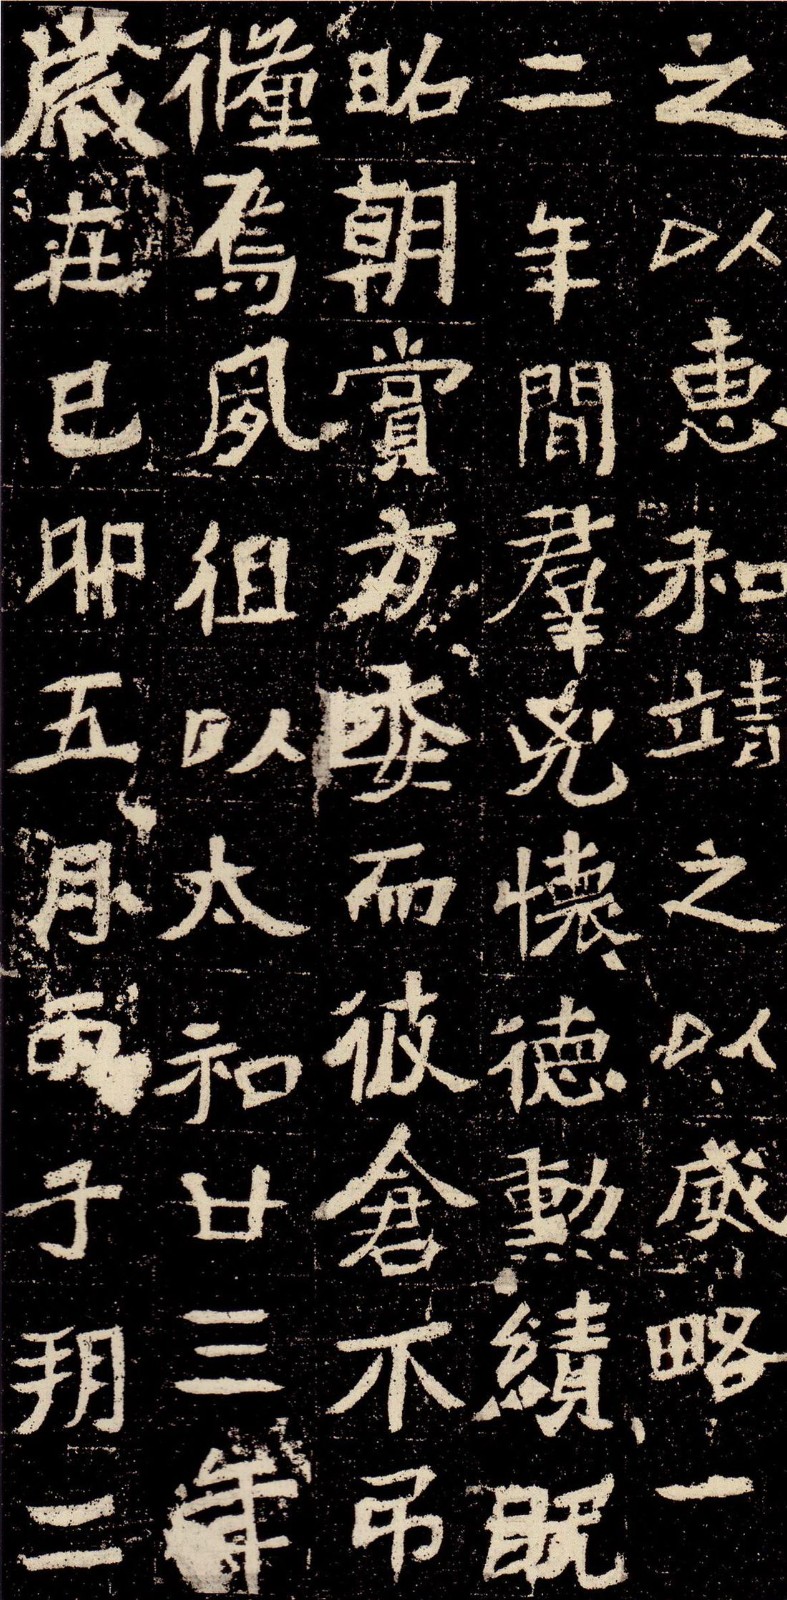 之以惠和靖之以威略一
二年間羣兇懷德勳績既
昭朝賞方而彼倉不吊
焉夙徂以太和廿三年
歲在巳卯五月丙子朔二